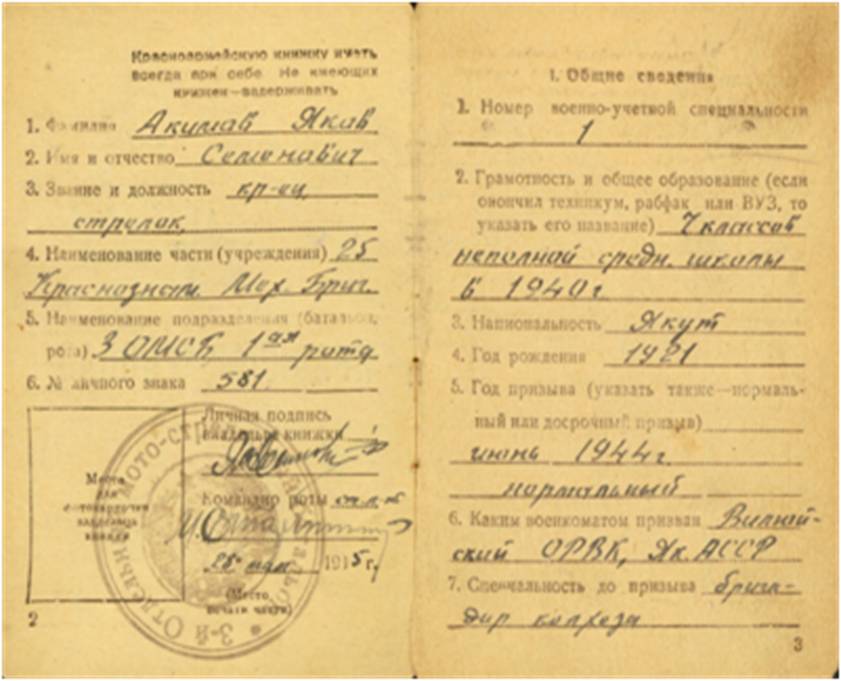 Красноармейскую книжку иметь
всегда при себе. Не имеющих
книжек—задерживать
1. Фамилия Акимов Яков
2. Имя и отчество Семенович
3. Звание и должность кр-ец,
стрелок,
4. Наименование части (учреждения) 25
Краснознам. Мех. Бриг.
5. Наименование подразделения (батальон,
рота) 3 ОМСБ 1ая рота
6. № личного знака 581
Личная подпись
владельца книжки
Место
для
фотокарточки
владельца
книжки
Командир роты ст. л-т
25 мая 1945 г.
(Место
печати части)
3-й Отдельн МОТО-СТР
2
1. Общие сведения
1. Номер военно-учетной специальности
1
2. Грамотность и общее образование (если
окончил техникум, рабфак или ВУЗ, то
указать его название) 7 классов
неполной средн. школы
в 1940 г.
3. Национальность Якут
4. Год рождения 1921
5. Год призыва (указать также—нормаль-
ный или досрочный призыв)
июнь 1944 г.
нормальный
6. Каким военкоматом призван Вилюй-
ский ОРВК, Як. АССР
7. Специальность до призыва брига-
дир колхоза
3